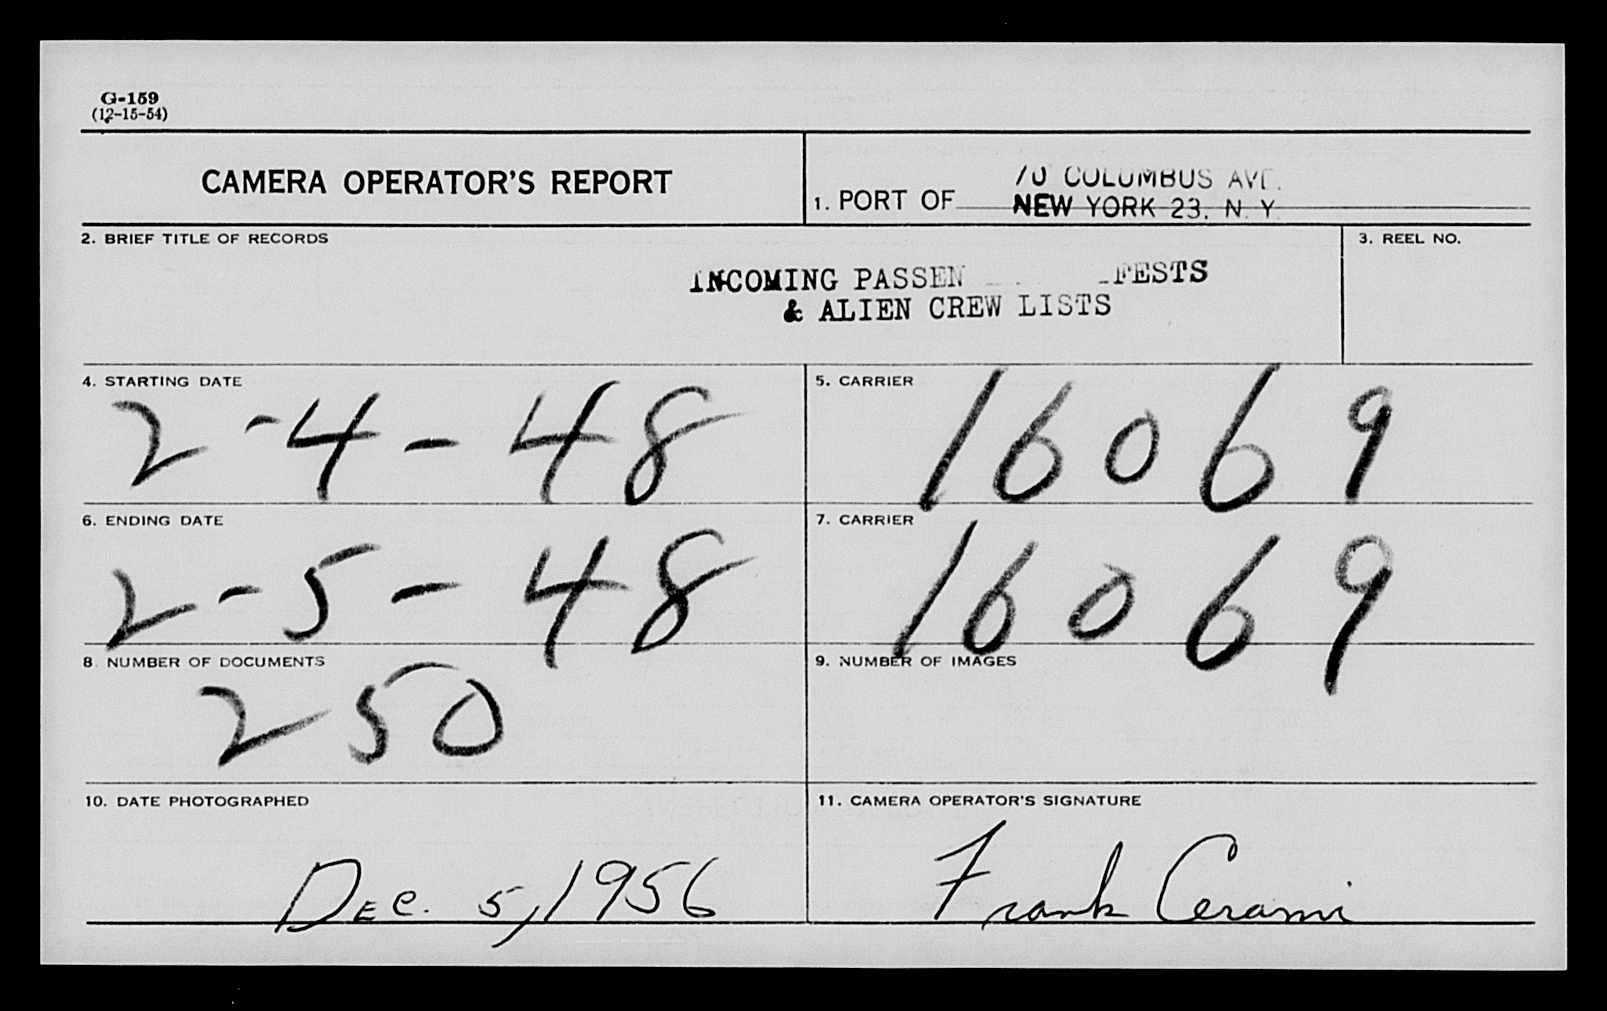 G-159
(12-15-54)
CAMERA OPERATOR'S REPORT
1. PORT OF
70 COLUMBUS AVE.
NEW YORK 23, N. Y.
2. BRIEF TITLE OF RECORDS
INCOMING PASSEN FESTS
& ALIEN CREW LISTS
3. REEL NO.
4. STARTING DATE
2-4-48
5. CARRIER
16069
6. ENDING DATE
2-5-48
7. CARRIER
16069
8. NUMBER OF DOCUMENTS
250
9. NUMBER OF IMAGES
10. DATE PHOTOGRAPHED
Dec. 5, 1956
11. CAMERA OPERATOR'S SIGNATURE
Frank Cerami